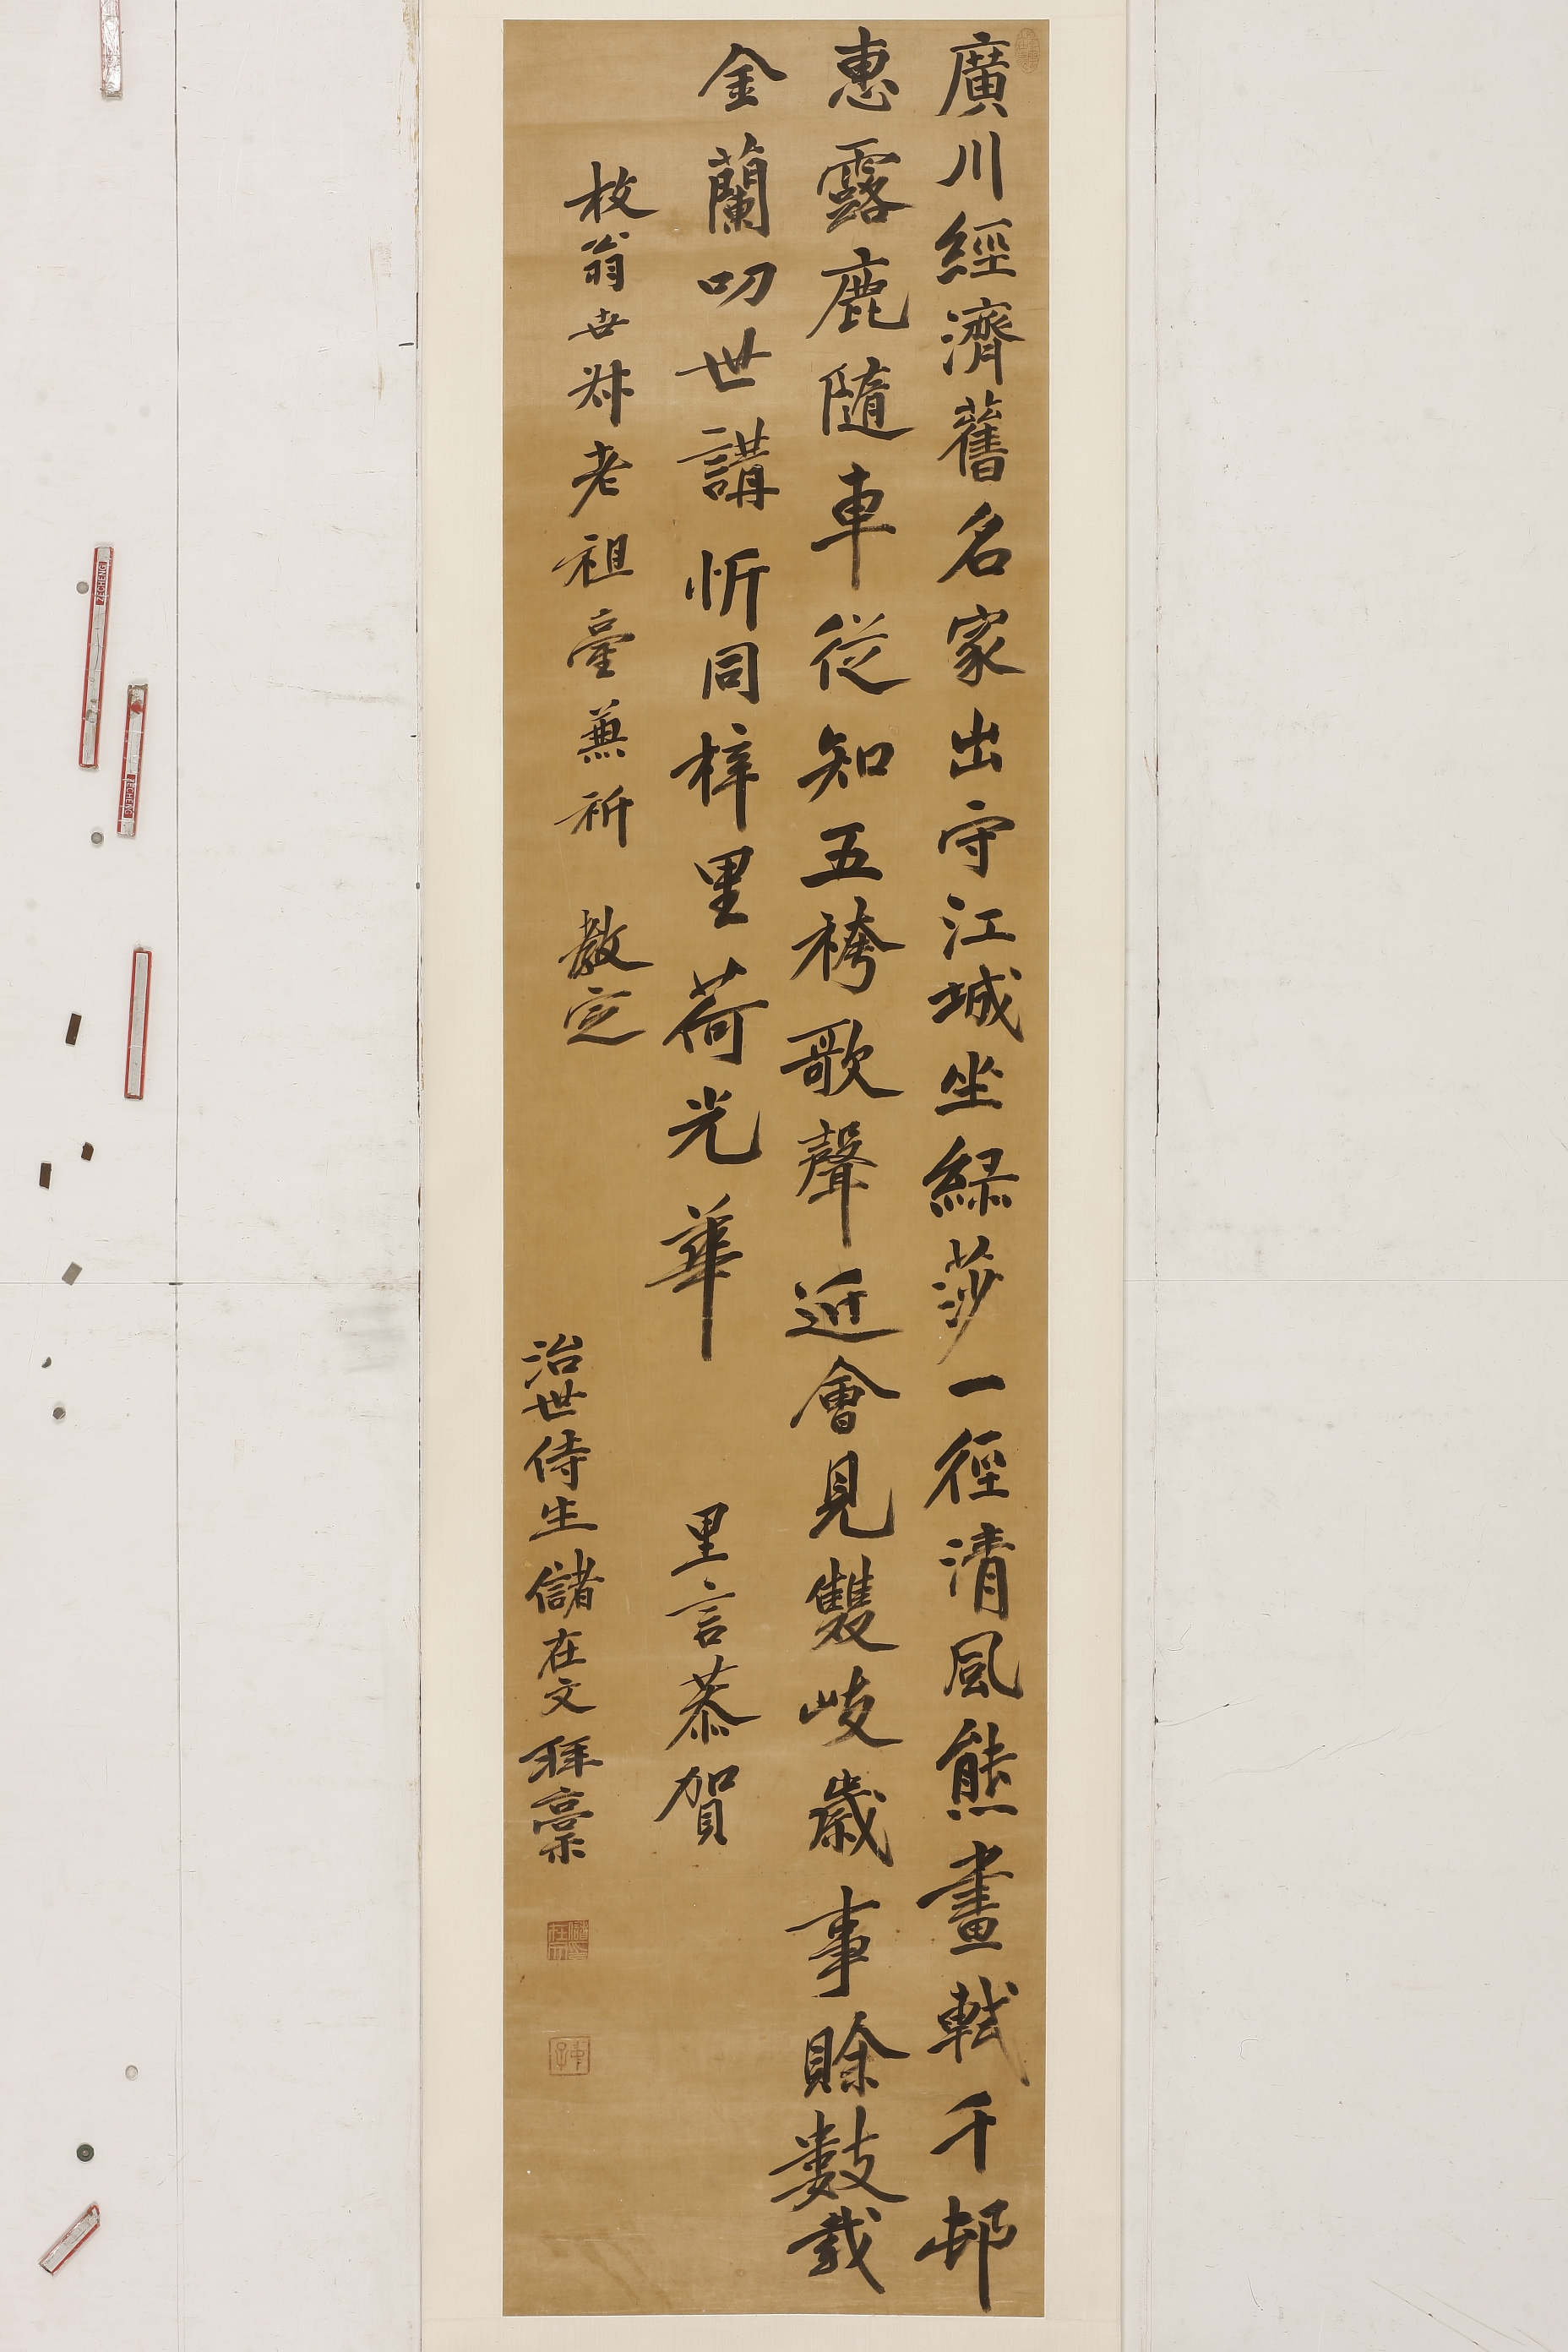 廣川經濟舊名家出守江城坐綠莎一徑清風熊畫軾千邨
惠露鹿隨車從知五袴歌聲近會見雙岐歲事賒數載
金蘭叨世講忻同梓里荷光華 里言恭賀
枚翁世叔老祖臺兼祈 教定
治世侍生儲在文拜稾
ZECHENG
ZECHENG